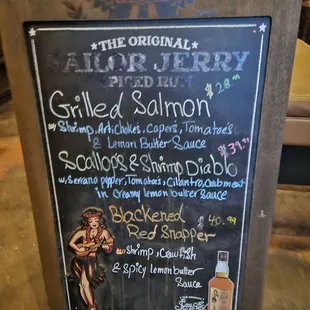 THE ORIGINAL
SAILOR JERRY
SPICED RUM
Grilled Salmon
w/ Shrimp, Artichokes, Capers, Tomatoes
& Lemon Butter Sauce
Scallops & Shrimp Diablo
w/ Serrano pepper, Tomatoes, Cilantro, Crabmeat
in Creamy lemon butter sauce
Blackened $40.99
Red Snapper
w/ Shrimp, Crawfish
& Spicy lemon butter
Sauce